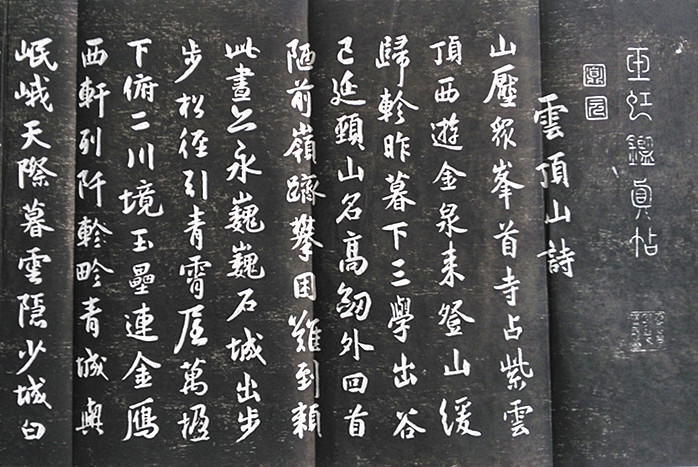 玉虹鑑真帖
雲頂山詩
山壓眾峯首寺占紫雲
頂西遊金泉来登山緩
歸軫昨暮下三學出谷
已延頸山名高劒外回首
陋前嶺躋攀困難到類
此畫公永巍巍石城出步
步松徑引青霄厓萬堙
下俯二川境玉壘連金鴈
西軒列阡軫畛青城與
岷峨天際暮雲隱少城白